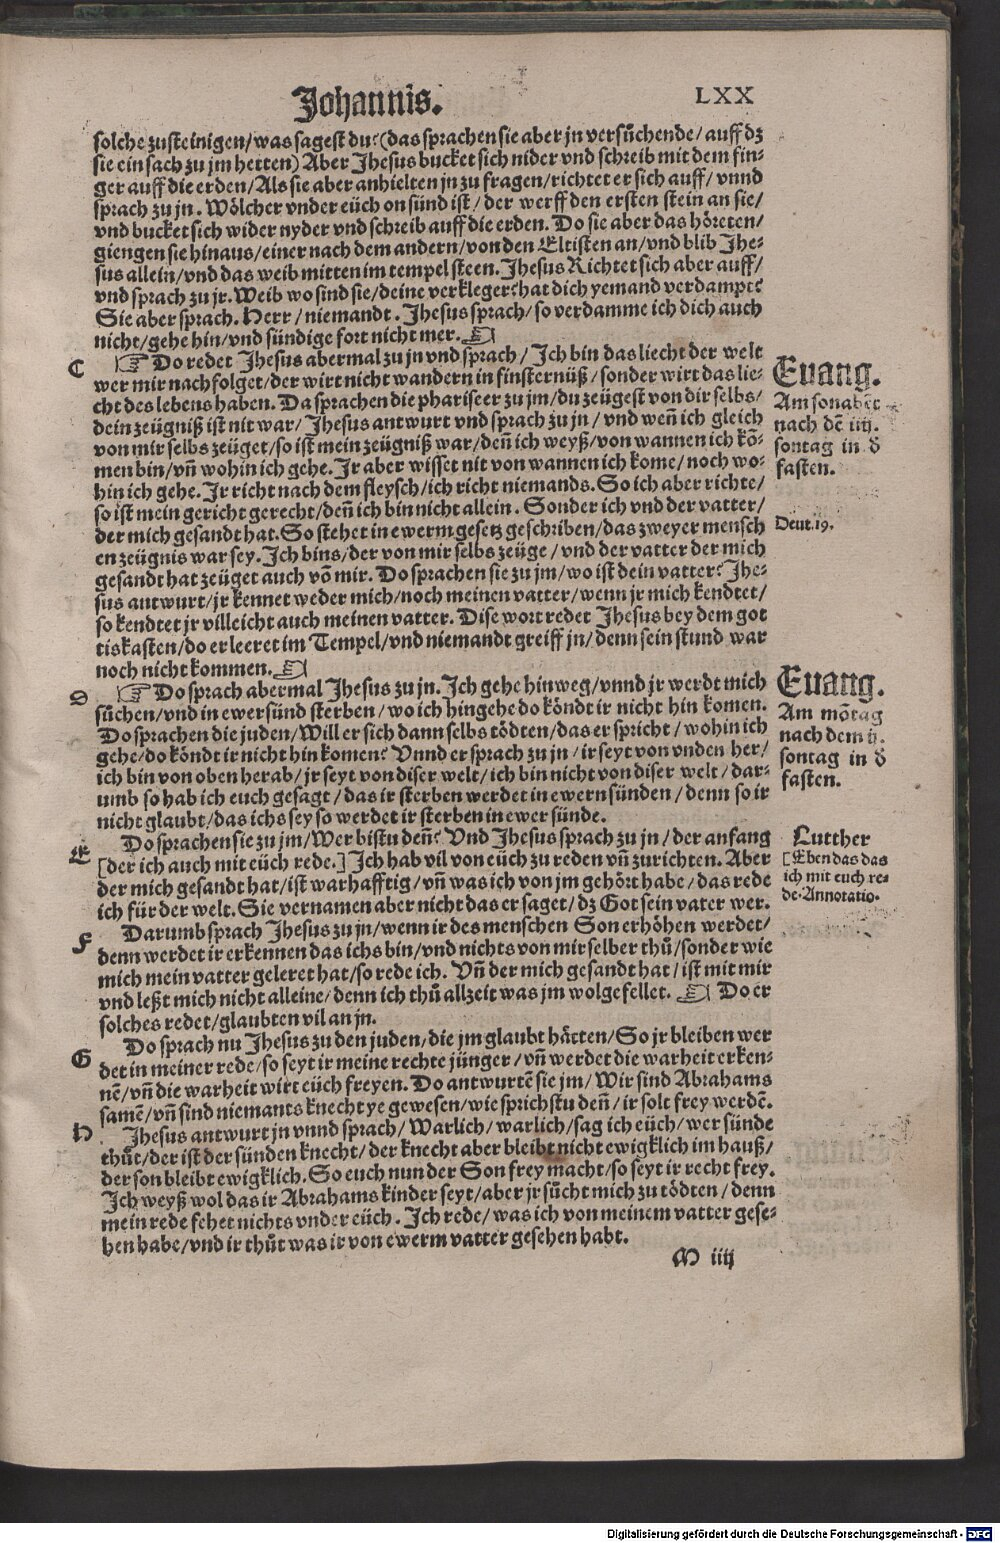 Johannis.
LXX
solche zusteinigen/was sagest du? (das sprachen sie aber jn versůchende/auff dz
sie ein sach zu jm hetten) Aber Jhesus bucket sich nider vnd schreib mit dem fin⸗
ger auff die erden/Als sie aber anhielten jn zu fragen/richtet er sich auff/vnnd
sprach zu jn. Wölcher vnder eüch on sünd ist/der werff den ersten stein an sie/
vnd bucket sich wider nyder vnd schreib auff die erden. Do sie aber das höreten/
giengen sie hinaus/einer nach dem andern/von den Eltisten an/vnd blib Jhe⸗
sus allein/vnd das weib mitten im tempel steen. Jhesus Richtet sich aber auff/
vnd sprach zu jr. Weib wo sind sie/deine verkleger? hat dich yemand verdampt?
Sie aber sprach. Herr/niemandt. Jhesus sprach/so verdamme ich dich auch
nicht/gehe hin/vnd sündige fort nicht mer. ☜
C
☞ Do redet Jhesus abermal zu jn vnd sprach/Ich bin das liecht der welt
wer mir nachfolget/der wirt nicht wandern in finsternüß/sonder wirt das lie⸗
cht des lebens haben. Da sprachen die phariseer zu jm/du zeügest von dir selbs/
dein zeügniß ist nit war/Jhesus antwurt vnd sprach zu jn/vnd weñ ich gleich
von mir selbs zeüget/so ist mein zeügniß war/deñ ich weyß/von wannen ich kō⸗
men bin/vñ wohin ich gehe. Ir aber wisset nit von wannen ich kome/noch wo⸗
hin ich gehe. Ir richt nach dem fleysch/ich richt niemands. So ich aber richte/
so ist mein gericht gerecht/deñ ich bin nicht allein. Sonder ich vnd der vatter/
der mich gesandt hat. So stehet in ewerm gesetz geschriben/das zweyer mensch
en zeügnis war sey. Ich bins/der von mir selbs zeüge/vnd der vatter der mich
gesandt hat zeüget auch vō mir. Do sprachen sie zu jm/wo ist dein vatter? Jhe⸗
sus antwurt/jr kennet weder mich/noch meinen vatter/wenn jr mich kendtet/
so kendtet jr villeicht auch meinen vatter. Dise wort redet Jhesus bey dem got
tiskasten/do er leeret im Tempel/vnd niemandt greiff jn/denn sein stund war
noch nicht kommen. ☜
Euang.
Am sonabēt
nach dē iiij.
sontag in d̄
fasten.
Deut.19.
D
☞ Do sprach abermal Jhesus zu jn. Ich gehe hinweg/vnnd jr werdt mich
sůchen/vnd in ewer sünd sterben/wo ich hingehe do köndt ir nicht hin komen.
Do sprachen die juden/Will er sich dann selbs tödten/das er spricht/wohin ich
gehe/do köndt ir nicht hin komen? Vnnd er sprach zu jn/ir seyt von vnden her/
ich bin von oben herab/jr seyt von diser welt/ich bin nicht von diser welt/dar⸗
umb so hab ich euch gesagt/das ir sterben werdet in ewern sünden/denn so ir
nicht glaubt/das ichs sey so werdet ir sterben in ewer sünde.
Euang.
Am mōtag
nach dem ij.
sontag in d̄
fasten.
E
Do sprachen sie zu jm/Wer bistu deñ? Vnd Jhesus sprach zu jn/der anfang
[der ich auch mit eüch rede.] Ich hab vil von eüch zu reden vñ zurichten. Aber
der mich gesandt hat/ist warhafftig/vñ was ich von jm gehört habe/das rede
ich für der welt. Sie vernamen aber nicht das er saget/dz Got sein vater wer.
Lutther
[Eben das das
ich mit euch re⸗
de. Annotatio.
F
Darumb sprach Jhesus zu jn/wenn ir des menschen Son erhöhen werdet/
denn werdet ir erkennen das ichs bin/vnd nichts von mir selber thů/sonder wie
mich mein vatter geleret hat/so rede ich. Vñ der mich gesandt hat/ist mit mir
vnd leßt mich nicht alleine/denn ich thů allzeit was jm wolgefellet. ☜ Do er
solches redet/glaubten vil an jn.
G
Do sprach nu Jhesus zu den juden/die jm glaubt hätten/So jr bleiben wer
det in meiner rede/so seyt ir meine rechte jünger/vñ werdet die warheit erken⸗
nē/vñ die warheit wirt eüch freyen. Do antwurtē sie jm/Wir sind Abrahams
samē/vñ sind niemants knecht ye gewesen/wie sprichstu deñ/ir solt frey werdē.
H
Jhesus antwurt jn vnnd sprach/Warlich/warlich/sag ich eüch/wer sünde
thůt/der ist der sünden knecht/der knecht aber bleibt nicht ewigklich im hauß/
der son bleibt ewigklich. So euch nun der Son frey macht/so seyt ir recht frey.
Ich weyß wol das ir Abrahams kinder seyt/aber jr sůcht mich zu tödten/denn
mein rede fehet nichts vnder eüch. Ich rede/was ich von meinem vatter gese⸗
hen habe/vnd ir thůt was ir von ewerm vatter gesehen habt.
M iiij
Digitalisierung gefördert durch die Deutsche Forschungsgemeinschaft - DFG